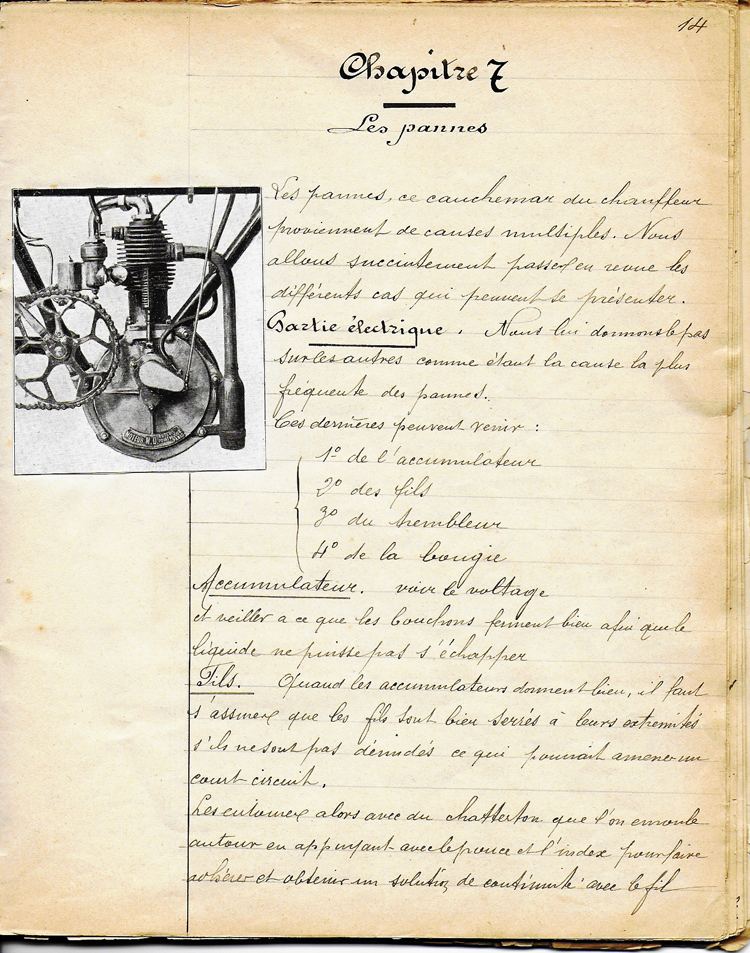 14
Chapitre 7
Les pannes
Les pannes, ce cauchemar du chauffeur
proviennent de causes multiples. Nous
allons succintement passer en revue les
différents cas qui peuvent se présenter.
Partie électrique. Nous lui donnons le pas
sur les autres comme étant la cause la plus
fréquente des pannes.
Ces dernières peuvent venir :
1º de l'accumulateur
2º des fils
3º du trembleur
4º de la bougie
Accumulateur. voir le voltage
et veiller a ce que les bouchons ferment bien afin que le
liquide ne puisse pas s'échapper
Fils. Quand les accumulateurs donnent bien, il faut
s'assurer que les fils sont bien serrés à leurs extremités
s'ils ne sont pas dénudés ce qui pourrait amener un
court circuit.
Les entourer alors avec du chatterton que l'on enroule
autour en appuyant avec le pouce et l'index pour faire
adhérer et obtenir un solution de continuité avec le fil